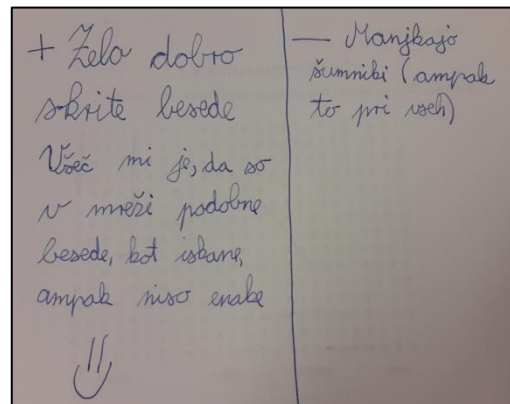 + Zelo dobro
skrite besede
Všeč mi je, da so
v mreži podobne
besede, kot iskane,
ampak niso enake
— Manjkajo
šumniki (ampak
to pri vseh)